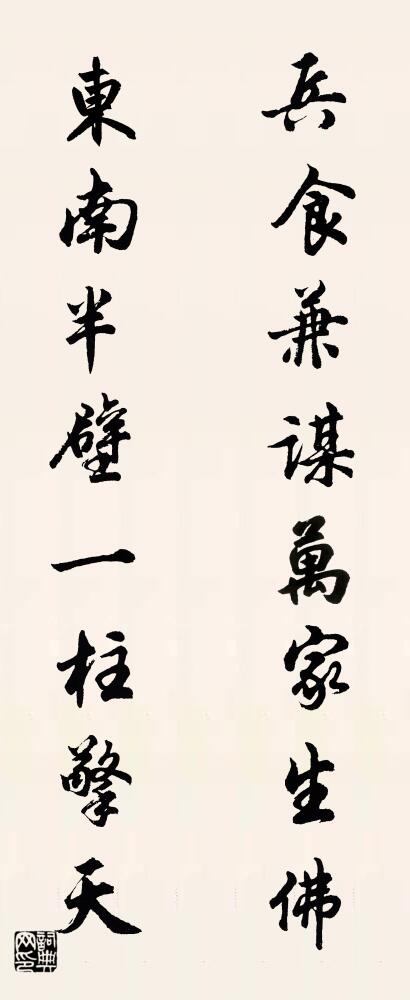 兵食兼謀萬家生佛
東南半壁一柱擎天
詞典网印